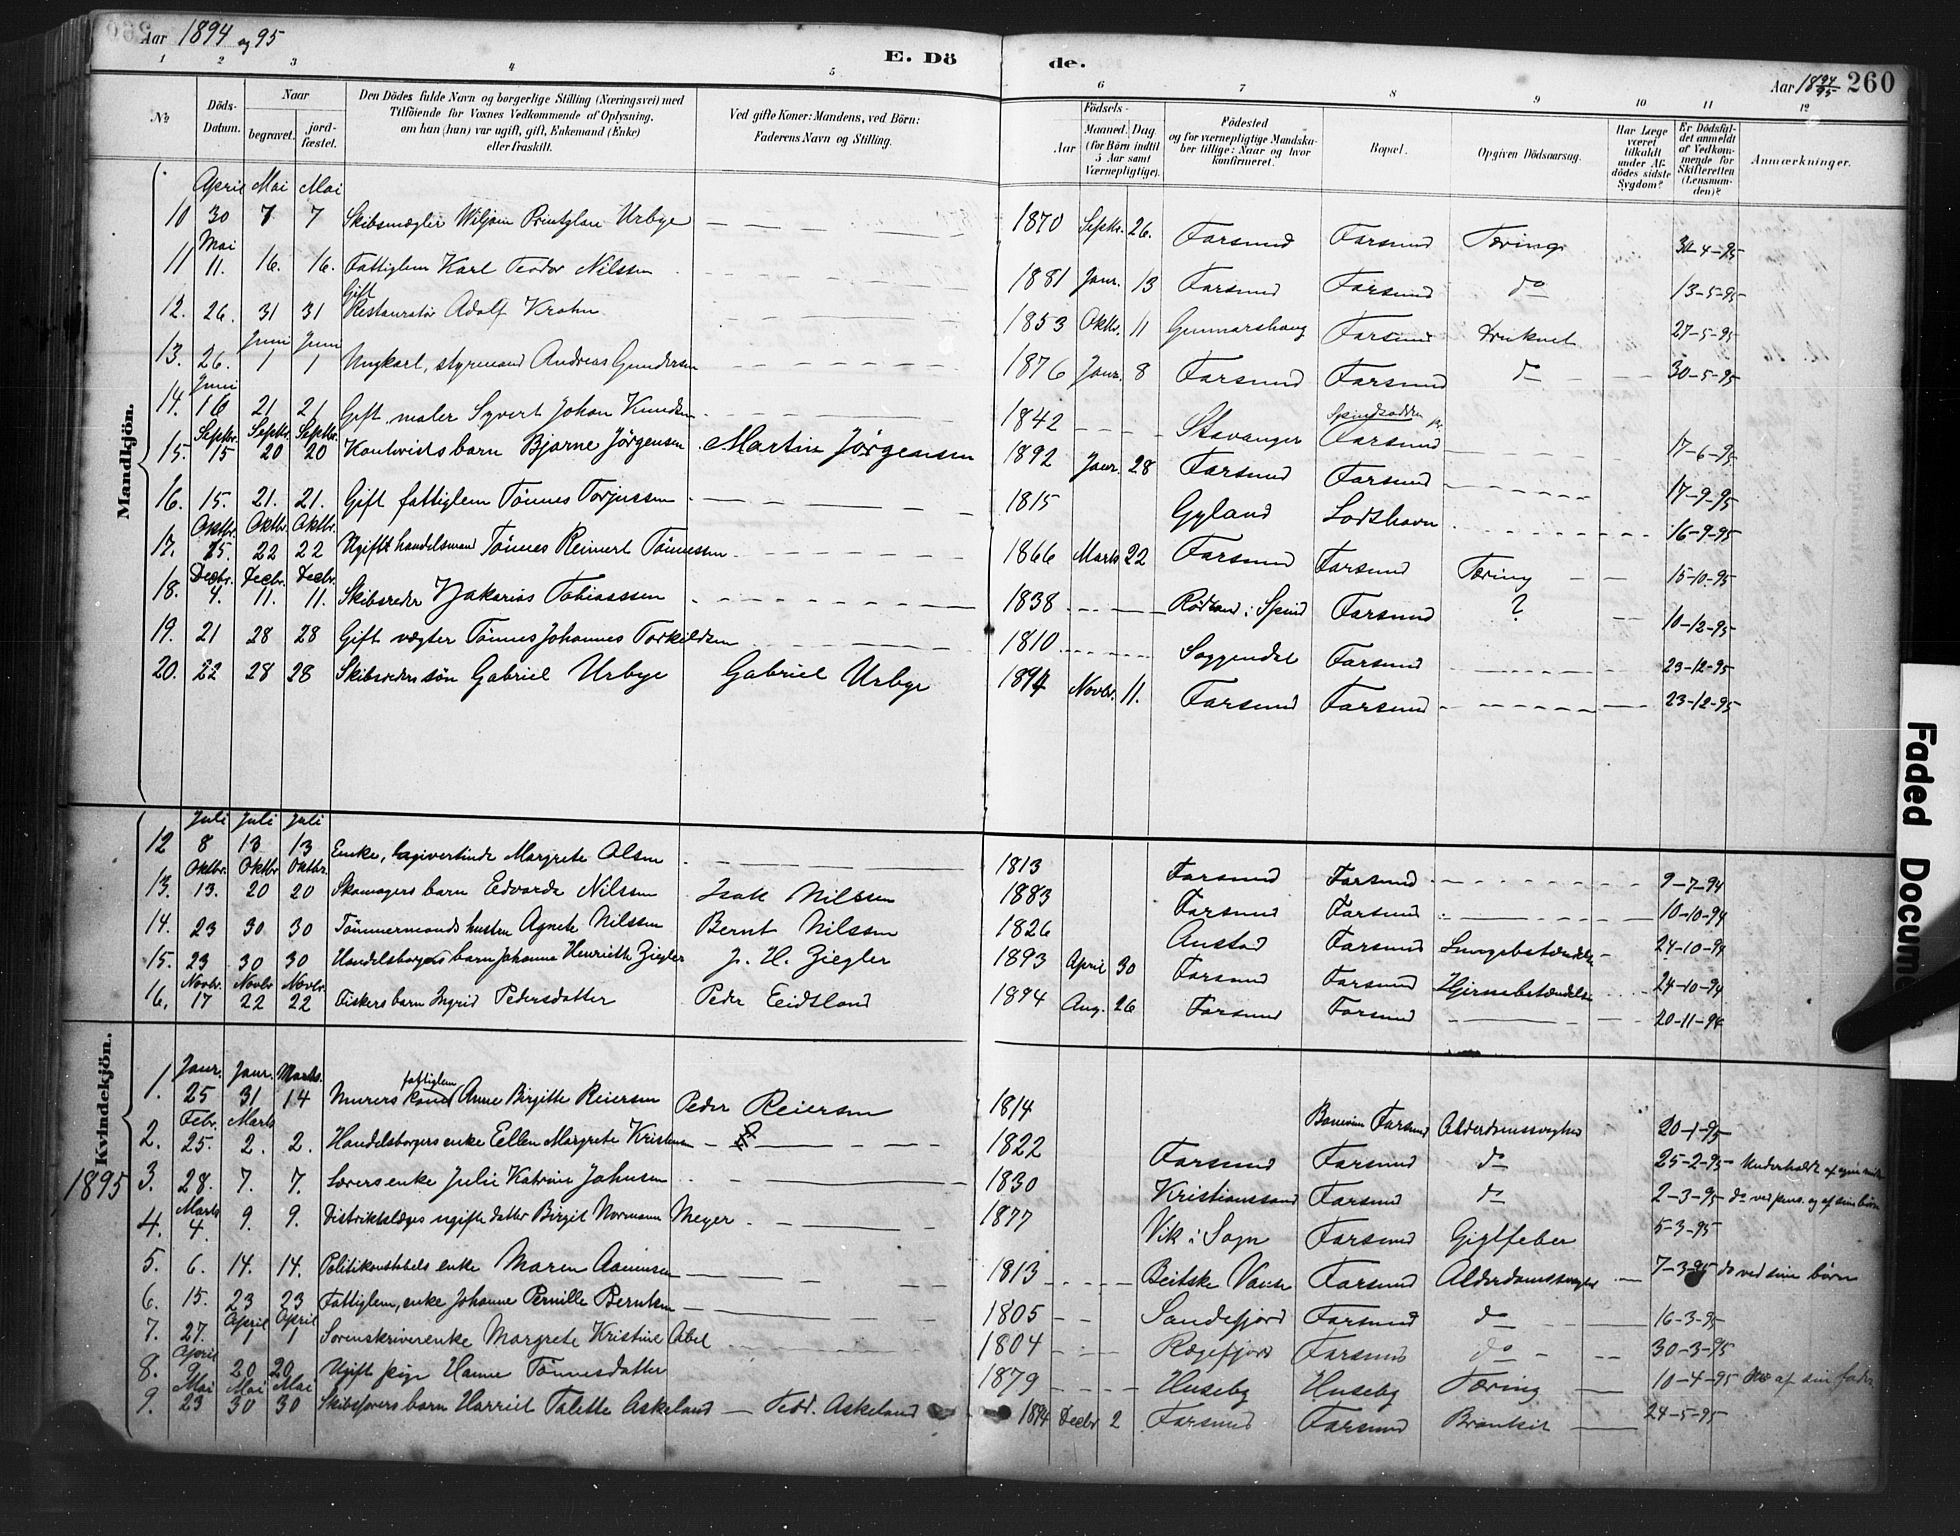 Aar 1894 og 95
E. Dö de.
Aar 1894/95 260
1 2 3 4 5 6 7 8 9 10 11 12
No
Döds-Datum.
Naar
begravet.
jord-fæstet.
Den Dödes fulde Navn og borgerlige Stilling (Næringsvei) med
Tilföiende for Voxnes Vedkommende af Oplysning.
om han (hun) var ugift, gift, Enkemand (Enke)
eller fraskilt.
Ved gifte Koner: Mandens, ved Börn:
Faderens Navn og Stilling.
Födsels-
Aar
Maaned. Dag
(for Börn indtil
5 Aar samt
Værnepligtige).
Födested
og for værnepligtige Mandska-
ber tillige: Naar og hvor
konfirmeret.
Bopæl.
Opgiven Dödsaarsag.
Har Læge
været
tilkaldt
under Af-
dödes sidste
Sygdom?
Er Dödsfal-
det anmeldt
af Vedkom-
mende for
Skifteretten
(Lensman-
den)?
Anmærkninger.
Mandkjön.
April Mai Mai
10 30 7 7 Skibsmægler Urbye 1870 Septbr. 26. Farsund Farsund Tæring 30-4-95
Mai
11 11. 16. 16. Fattiglem Karl Teodor Nilssen 1881 Janr. 13 Farsund Farsund do 13-5-95
12. 26. 31 31 Gift Restauratør Adolf Krohn 1853 Oktbr. 11 Gunnarshaug Farsund Druknet 27-5-95
Juni Juni
13. 26. 1 1 Ungkarl, styrmand Andreas Gundersen 1876 Janr. 8 Farsund Farsund do 30-5-95
Juni
14. 16 21 21 Gift maler Syvert Johan Knudsen 1842 Stavanger Farsund 17-6-95
Septbr. Septbr. Septbr.
15. 15 20 20 barn Bjarne Jörgensen Martin Jörgensen 1892 Janr. 28 Farsund Farsund 17-9-95
16. 15. 21. 21. Gift fattiglem Tönnes Torjussen 1815 Gyland Lodshavn 16-9-95
Oktbr. Oktbr. Oktbr.
17. 15. 22 22 Ugift handelsmand Tönnes Reinert Tönnessen 1866 Marts 22 Farsund Farsund Tæring 15-10-95
Decbr. Decbr. Decbr.
18. 4. 11. 11. Skibsreder Tobiassen 1838 i Spind Farsund ? 10-12-95
19. 21 28 28 Gift vægter Tönnes Johannes Torkildsen 1810 Soggendal Farsund 23-12-95
20. 22 28 28 Skibsreders sön Gabriel Urbye Gabriel Urbye 1894 Novbr. 11. Farsund Farsund 23-12-95
Kvindekjön.
Juli Juli Juli
12 8 13 13 Enke, Margrete Olsen 1813 Farsund Farsund 9-7-94
Oktbr. Oktbr Oktbr.
13. 13. 20 20 Skomagers barn Edvarda Nilssen Isak Nilssen 1883 Farsund Farsund 10-10-94
14. 23 30 30 Tömmermands hustru Agnete Nilssen Bernt Nilssen 1826 Austad Farsund Lungebetændelse 24-10-94
15. 23 30 30 Handelsborgers barn Johanne Henriette Ziegler J. H. Ziegler 1893 April 30 Farsund Farsund Hjernebetændelse 24-10-94
Novbr. Novbr Novbr.
16. 17 22 22 Fiskers barn Ingrid Pedersdatter Peder Eidsland 1894 Aug. 26 Farsund Farsund 20-11-94
1895
Janr. Janr. Marts.
1. 25 31 14 Murers kone fattiglem Anne Birgitte Reiersen Peder Reiersen 1814 Farsund Alderdomssvaghed 20-1-95
Febr. Marts
2. 25. 2. 2. Handelsborgers enke Ellen Margrete 1822 Farsund Farsund do 25-2-95
3. 28. 7. 7. enke Julie Katrine Johnsen 1830 Kristianssand Farsund do 2-3-95 do ved pens. og af sine börn
Marts
4. 4. 9. 9. Distriktslæges ugifte datter Birgit Normann Meyer 1877 Vik i Sogn Farsund Gigtfeber 5-3-95
5. 6. 14. 14. Politikonstabels enke Maren 1813 Farsund Alderdomssvaghed 7-3-95 do ved sine börn
6. 15. 23 23 Fattiglem, enke Johanne Pernille Berntsen 1805 Sandefjord Farsund do 16-3-95
April April
7. 27. 1 1 Sorenskriverenke Margrete Kristine Abel 1804 Rægefjord Farsund do 30-3-95
April
8. 9 20 20 Ugift pige Hanne Tönnesdatter 1879 Huseby Huseby Tæring 10-4-95 af sin fader
Mai Mai Mai
9. 23 30 30 Skibsförers barn Harriet Talette Askeland Teod. Askeland 1894 Decbr 2 Farsund Farsund Bronkit 24-5-95
Faded Docume